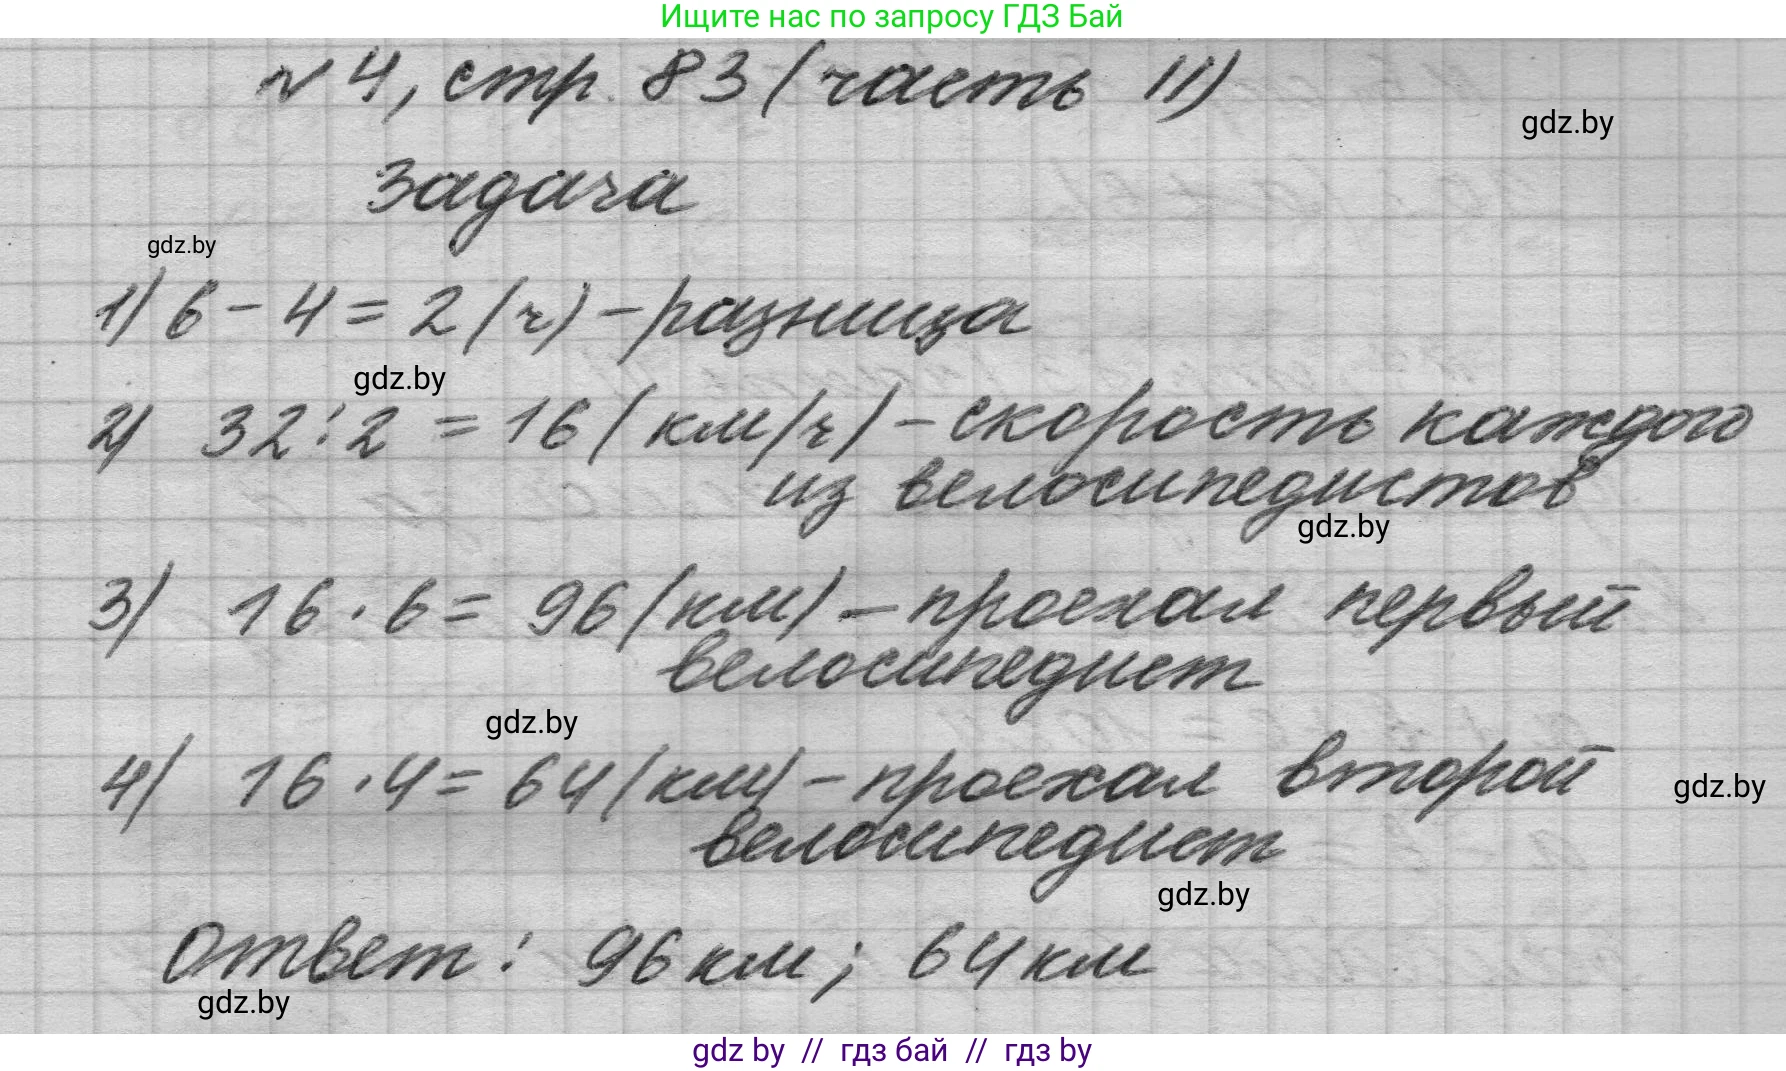 Ищите нас по запросу ГДЗ Бай
№ 4, стр. 83 (часть II)
gdz.by
Задача
gdz.by
1) 6 - 4 = 2 (ч) - разница
gdz.by
2) 32 : 2 = 16 (км/ч) - скорость каждого
из велосипедистов
gdz.by
3) 16 · 6 = 96 (км) - проехал первый
велосипедист
gdz.by
4) 16 · 4 = 64 (км) - проехал второй
gdz.by
велосипедист
gdz.by
Ответ: 96 км; 64 км
gdz.by
gdz by // гдз бай // гдз by